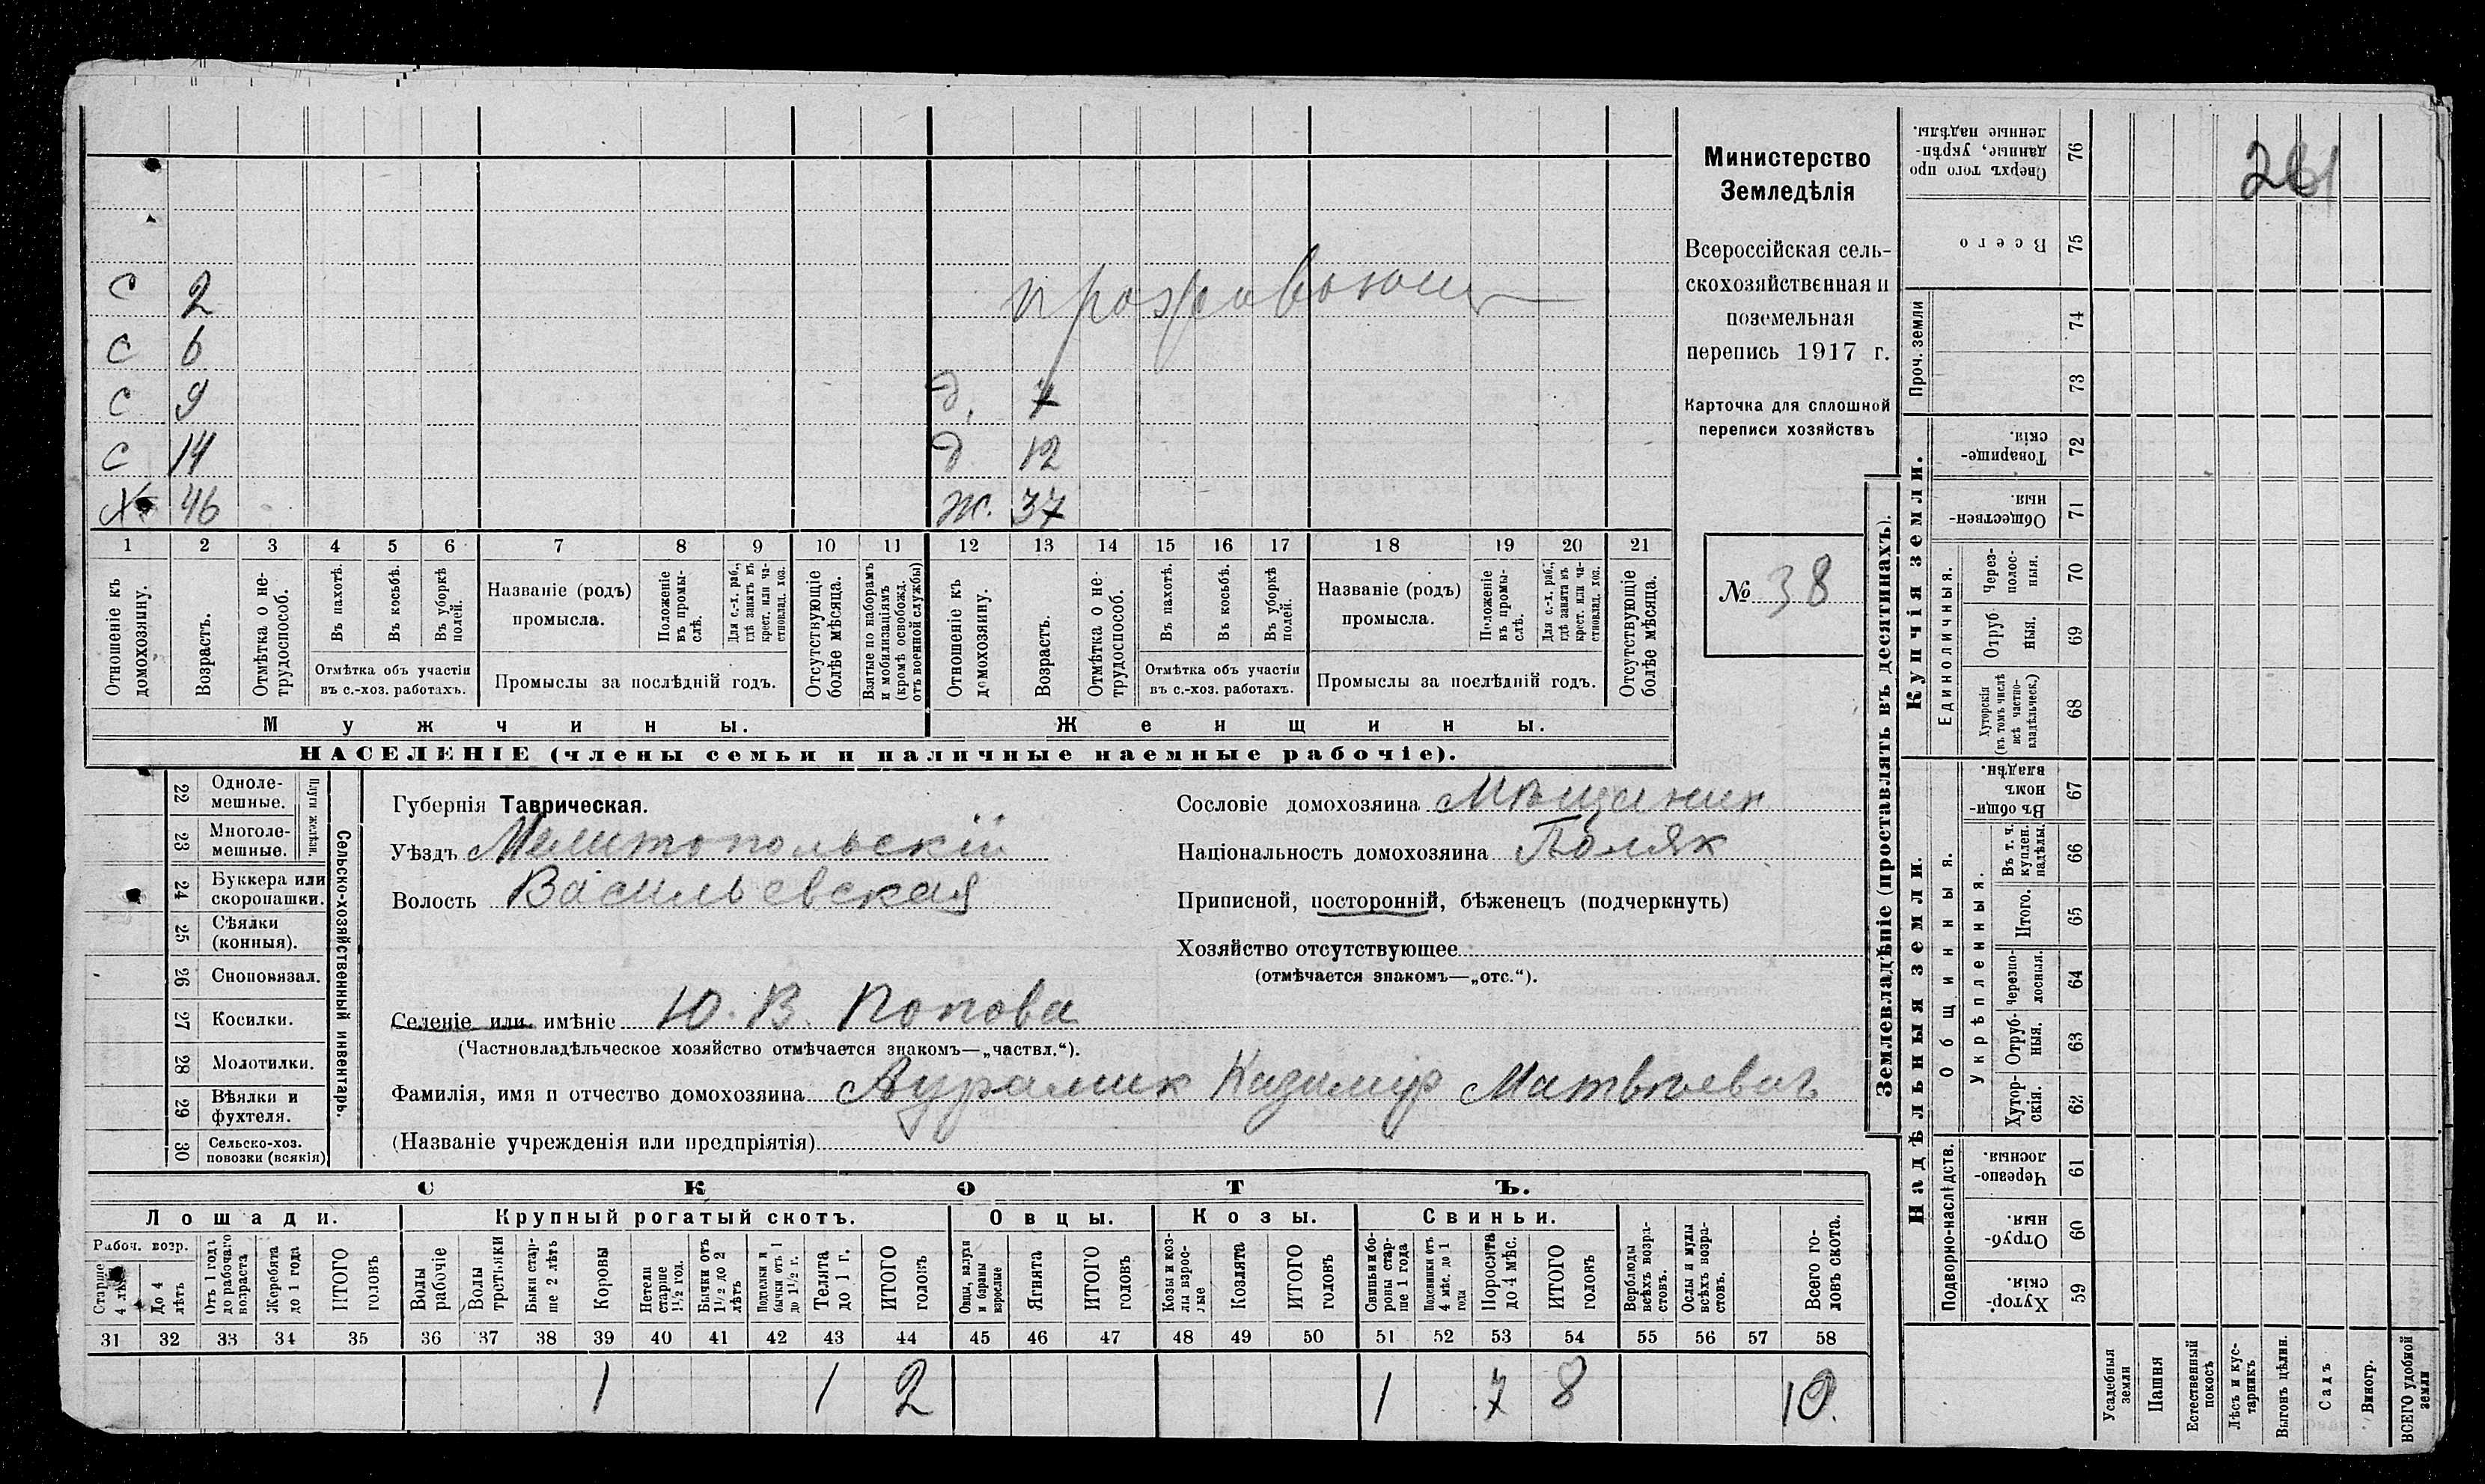 261
Министерство
Земледѣлія
Всероссійская сель-
скохозяйственная и
поземельная
перепись 1917 г.
Карточка для сплошной
переписи хозяйствъ
№ 38
проживающ
С 2
С 6
С 9 д. 7
С 14 д. 12
Х 46 Ж. 37
1 2 3 4 5 6 7 8 9 10 11 12 13 14 15 16 17 18 19 20 21
Отношеніе къ домохозяину.
Возрастъ.
Отмѣтка о не-трудоспособ.
Въ пахотѣ.
Въ косьбѣ.
Въ уборкѣ полей.
Отмѣтка объ участіи
въ с.-хоз. работахъ.
Названіе (родъ)
промысла.
Положеніе въ промы-слѣ.
Для с.-х. раб., гдѣ занятъ въ крест. или ча-стновлад. хоз.
Промыслы за послѣдній годъ.
Отсутствующіе болѣе мѣсяца.
Взятые по наборамъ и мобилизаціямъ (кромѣ освобожд. отъ военной службы)
Отношеніе къ домохозяину.
Возрастъ.
Отмѣтка о не-трудоспособ.
Въ пахотѣ.
Въ косьбѣ.
Въ уборкѣ полей.
Отмѣтка объ участіи
въ с.-хоз. работахъ.
Названіе (родъ)
промысла.
Положеніе въ промы-слѣ.
Для с.-х. раб., гдѣ занята въ крест. или ча-стновлад. хоз.
Промыслы за послѣдній годъ.
Отсутствующіе болѣе мѣсяца.
Мужчины. Женщины.
НАСЕЛЕНІЕ (члены семьи и наличные наемные рабочіе).
Сельско-хозяйственный инвентарь.
Плуги желѣзн.
22 Одноле-мешные.
23 Многоле-мешные.
24 Буккера или скоропашки.
25 Сѣялки (конныя).
26 Сноповязал.
27 Косилки.
28 Молотилки.
29 Вѣялки и фухтеля.
30 Сельско-хоз. повозки (всякія)
Губернія Таврическая.
Уѣздъ Мелитопольскій
Волость Васильевская
Сословіе домохозяина Мѣщанин
Національность домохозяина Поляк
Приписной, посторонній, бѣженецъ (подчеркнуть)
Хозяйство отсутствующее
(отмѣчается знакомъ—„отс.“).
Селеніе или имѣніе Ю. В. Попова
(Частновладѣльческое хозяйство отмѣчается знакомъ—„частвл.“).
Фамилія, имя и отчество домохозяина Казимир Матвѣевич
(Названіе учрежденія или предпріятія)
СКОТЪ.
Лошади. Крупный рогатый скотъ. Овцы. Козы. Свиньи.
Рабоч. возр.
Старше 4 лѣтъ
До 4 лѣтъ
Отъ 1 года до рабочаго возраста
Жеребята до 1 года
ИТОГО головъ
Волы рабочіе
Волы третьяки
Быки стар-ше 2 лѣтъ
Коровы
Нетели старше 1½ год.
Бычки отъ 1½ до 2 лѣтъ
Подтелки и бычки отъ 1 до 1½ г.
Телята до 1 г.
ИТОГО головъ
Овцы, валухи и бараны взрослые
Ягнята
ИТОГО головъ
Козы и коз-лы взрос-лые
Козлята
ИТОГО головъ
Свиньи и бо-ровы стар-ше 1 года
Подсвинки отъ 4 мѣс. до 1 года
Поросята до 4 мѣс.
ИТОГО головъ
Верблюды всѣхъ возра-стовъ.
Ослы и мулы всѣхъ возра-стовъ.
Всего го-ловъ скота.
31 32 33 34 35 36 37 38 39 40 41 42 43 44 45 46 47 48 49 50 51 52 53 54 55 56 57 58
1 1 2 1 7 8 10.
Землевладѣніе (проставлять въ десятинахъ).
Купчія земли.
Проч. земли
Единоличныя.
Надѣльныя земли.
Общинныя.
Укрѣпленныя.
Подворно-наслѣдств.
Сверхъ того про данные, укрѣп-ленные надѣлы. 76
Всего 75
74
73
Товарище-скія. 72
Обществен-ныя. 71
Через-полос-ныя. 70
Отруб ныя. 69
Хуторскія (въ томъ числѣ всѣ частно-владѣльческ.) 68
Въ общи-номъ владѣн. 67
Въ т. ч. куплен. надѣлы. 66
Итого. 65
Черезпо-лосныя. 64
Отруб-ныя. 63
Хутор-скія. 62
Черезпо-лосныя. 61
Отруб-ныя. 60
Хутор-скія. 59
Усадебныя земли
Пашня
Естественный покосъ
Лѣсъ и кус-тарникъ
Выгонъ цѣлин.
Садъ
Виногр.
ВСЕГО удобной земли